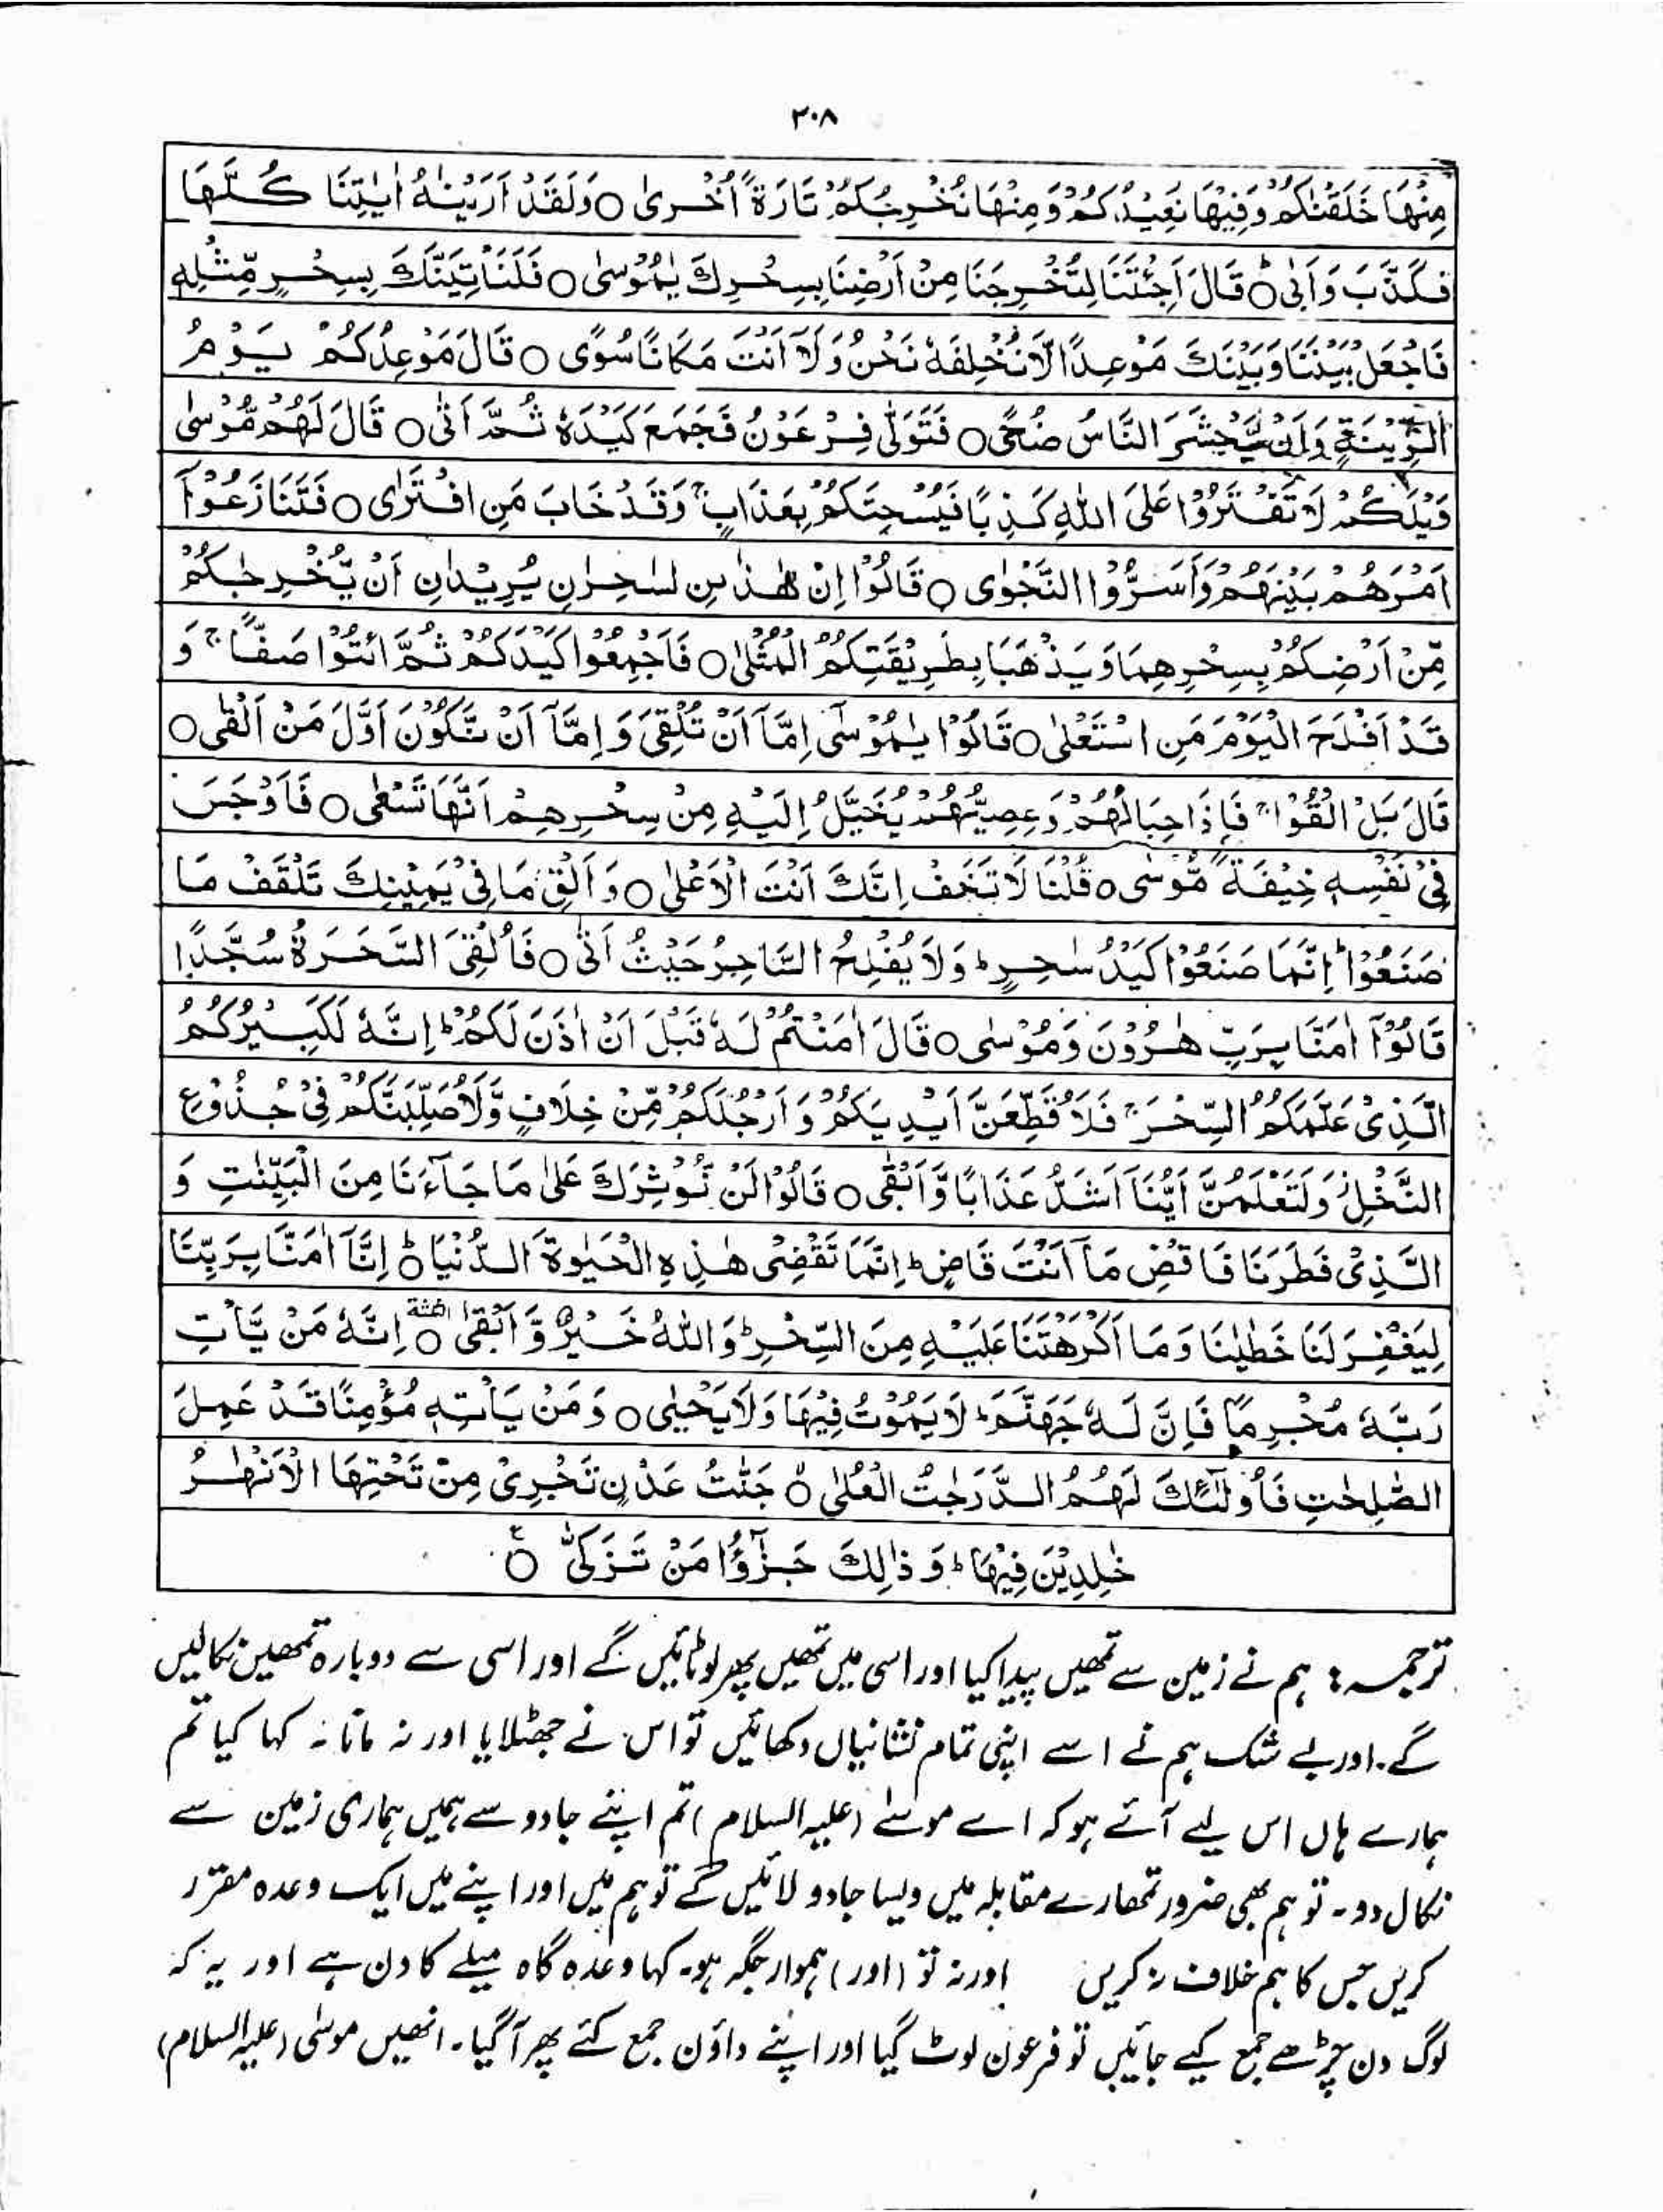 ۳۰۸
مِنْهَا خَلَقْنٰكُمْ وَفِيْهَا نُعِيْدُكُمْ وَمِنْهَا نُخْرِجُكُمْ تَارَةً اُخْرٰى ○ وَلَقَدْ اَرَيْنٰهُ اٰيٰتِنَا كُلَّهَا
فَكَذَّبَ وَاَبٰى ○ قَالَ اَجِئْتَنَا لِتُخْرِجَنَا مِنْ اَرْضِنَا بِسِحْرِكَ يٰمُوْسٰى ○ فَلَنَاْتِيَنَّكَ بِسِحْرٍ مِّثْلِهٖ
فَاجْعَلْ بَيْنَنَا وَبَيْنَكَ مَوْعِدًا لَّا نُخْلِفُهٗ نَحْنُ وَلَآ اَنْتَ مَكَانًا سُوًى ○ قَالَ مَوْعِدُكُمْ يَوْمُ
الزِّيْنَةِ وَاَنْ يُّحْشَرَ النَّاسُ ضُحًى ○ فَتَوَلّٰى فِرْعَوْنُ فَجَمَعَ كَيْدَهٗ ثُمَّ اَتٰى ○ قَالَ لَهُمْ مُّوْسٰى
وَيْلَكُمْ لَا تَفْتَرُوْا عَلَى اللّٰهِ كَذِبًا فَيُسْحِتَكُمْ بِعَذَابٍ ۚ وَقَدْ خَابَ مَنِ افْتَرٰى ○ فَتَنَازَعُوْٓا
اَمْرَهُمْ بَيْنَهُمْ وَاَسَرُّوا النَّجْوٰى ○ قَالُوْٓا اِنْ هٰذٰىنِ لَسٰحِرٰنِ يُرِيْدٰنِ اَنْ يُّخْرِجٰكُمْ
مِّنْ اَرْضِكُمْ بِسِحْرِهِمَا وَيَذْهَبَا بِطَرِيْقَتِكُمُ الْمُثْلٰى ○ فَاَجْمِعُوْا كَيْدَكُمْ ثُمَّ ائْتُوْا صَفًّا ۚ وَ
قَدْ اَفْلَحَ الْيَوْمَ مَنِ اسْتَعْلٰى ○ قَالُوْا يٰمُوْسٰٓى اِمَّآ اَنْ تُلْقِيَ وَاِمَّآ اَنْ نَّكُوْنَ اَوَّلَ مَنْ اَلْقٰى ○
قَالَ بَلْ اَلْقُوْا ۚ فَاِذَا حِبَالُهُمْ وَعِصِيُّهُمْ يُخَيَّلُ اِلَيْهِ مِنْ سِحْرِهِمْ اَنَّهَا تَسْعٰى ○ فَاَوْجَسَ
فِيْ نَفْسِهٖ خِيْفَةً مُّوْسٰى ○ قُلْنَا لَا تَخَفْ اِنَّكَ اَنْتَ الْاَعْلٰى ○ وَاَلْقِ مَا فِيْ يَمِيْنِكَ تَلْقَفْ مَا
صَنَعُوْا ؕ اِنَّمَا صَنَعُوْا كَيْدُ سٰحِرٍ ؕ وَلَا يُفْلِحُ السَّاحِرُ حَيْثُ اَتٰى ○ فَاُلْقِيَ السَّحَرَةُ سُجَّدًا
قَالُوْٓا اٰمَنَّا بِرَبِّ هٰرُوْنَ وَمُوْسٰى ○ قَالَ اٰمَنْتُمْ لَهٗ قَبْلَ اَنْ اٰذَنَ لَكُمْ ؕ اِنَّهٗ لَكَبِيْرُكُمُ
الَّذِيْ عَلَّمَكُمُ السِّحْرَ ۚ فَلَاُقَطِّعَنَّ اَيْدِيَكُمْ وَاَرْجُلَكُمْ مِّنْ خِلَافٍ وَّلَاُصَلِّبَنَّكُمْ فِيْ جُذُوْعِ
النَّخْلِ ۡ وَلَتَعْلَمُنَّ اَيُّنَآ اَشَدُّ عَذَابًا وَّاَبْقٰى ○ قَالُوْا لَنْ نُّؤْثِرَكَ عَلٰى مَا جَآءَنَا مِنَ الْبَيِّنٰتِ وَ
الَّذِيْ فَطَرَنَا فَاقْضِ مَآ اَنْتَ قَاضٍ ؕ اِنَّمَا تَقْضِيْ هٰذِهِ الْحَيٰوةَ الدُّنْيَا ○ؕ اِنَّآ اٰمَنَّا بِرَبِّنَا
لِيَغْفِرَ لَنَا خَطٰيٰنَا وَمَآ اَكْرَهْتَنَا عَلَيْهِ مِنَ السِّحْرِ ؕ وَاللّٰهُ خَيْرٌ وَّاَبْقٰى ○ اِنَّهٗ مَنْ يَّاْتِ
رَبَّهٗ مُجْرِمًا فَاِنَّ لَهٗ جَهَنَّمَ ؕ لَا يَمُوْتُ فِيْهَا وَلَا يَحْيٰى ○ وَمَنْ يَّاْتِهٖ مُؤْمِنًا قَدْ عَمِلَ
الصّٰلِحٰتِ فَاُولٰٓئِكَ لَهُمُ الدَّرَجٰتُ الْعُلٰى ○ۙ جَنّٰتُ عَدْنٍ تَجْرِيْ مِنْ تَحْتِهَا الْاَنْهٰرُ
خٰلِدِيْنَ فِيْهَا ؕ وَذَالِكَ جَزٰٓؤُا مَنْ تَزَكّٰى ○ع
ترجمہ : ہم نے زمین سے تمھیں پیدا کیا اور اسی میں تمھیں پھر لوٹائیں گے اور اسی سے دوبارہ تمھیں نکالیں
گے۔ اور بے شک ہم نے اسے اپنی تمام نشانیاں دکھائیں تو اس نے جھٹلایا اور نہ مانا ۔ کہا کیا تم
ہمارے ہاں اس لیے آئے ہو کہ اے موسیٰ (علیہ السلام) تم اپنے جادو سے ہمیں ہماری زمین سے
نکال دو۔ تو ہم بھی ضرور تمھارے مقابلہ میں ویسا جادو لائیں گے تو ہم میں اور اپنے میں ایک وعدہ مقرر
کریں جس کا ہم خلاف نہ کریں اور نہ تو (اور) ہموار جگہ ہو۔ کہا وعدہ گاہ میلے کا دن ہے اور یہ کہ
لوگ دن چڑھے جمع کیے جائیں تو فرعون لوٹ گیا اور اپنے داؤں جمع کئے پھر آ گیا۔ انھیں موسیٰ (علیہ السلام)